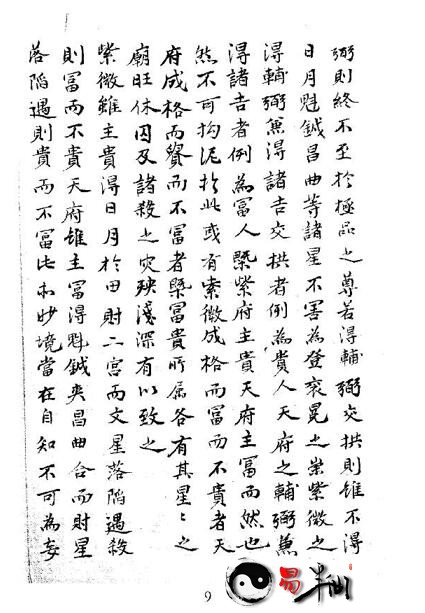 弼則終不至於極品之尊若得輔弼交拱則雖不得
日月魁鉞昌曲等諸星不害為登袞冕之崇紫微之
得輔弼兼得諸吉交拱者例為貴人天府之輔弼兼
得諸吉者例為冨人槩紫府主貴天府主冨而然也
然不可拘泥於此或有紫微成格而冨而不貴者天
府成格而貧而不冨者槩冨貴所属各有其星〻之
廟旺休囚及諸殺之灾殃淺深有以致之
紫微雖主貴得日月於田財二宫而文星落陷遇殺
則冨而不貴天府雖主冨得魁鉞夾昌曲合而財星
落陷遇則貴而不冨此亦妙境當在自知不可為妄
9
易半仙